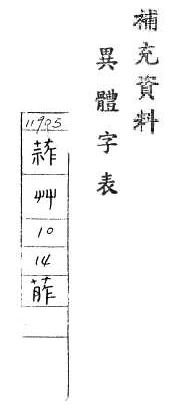 補充資料
異體字表
11905
艸
10
14